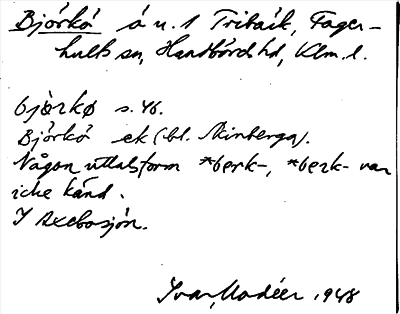 Björkö ö u. 1 Tribäck, Fager-
hults sn, Handbörds hd, Klm. l.
bjòrkø s. 46.
Björkö ek (bl. Minberga).
Någon uttalsform *berk-, *bęrk- var
icke känd.
I Axebosjön.
Ivar Modéer 1948